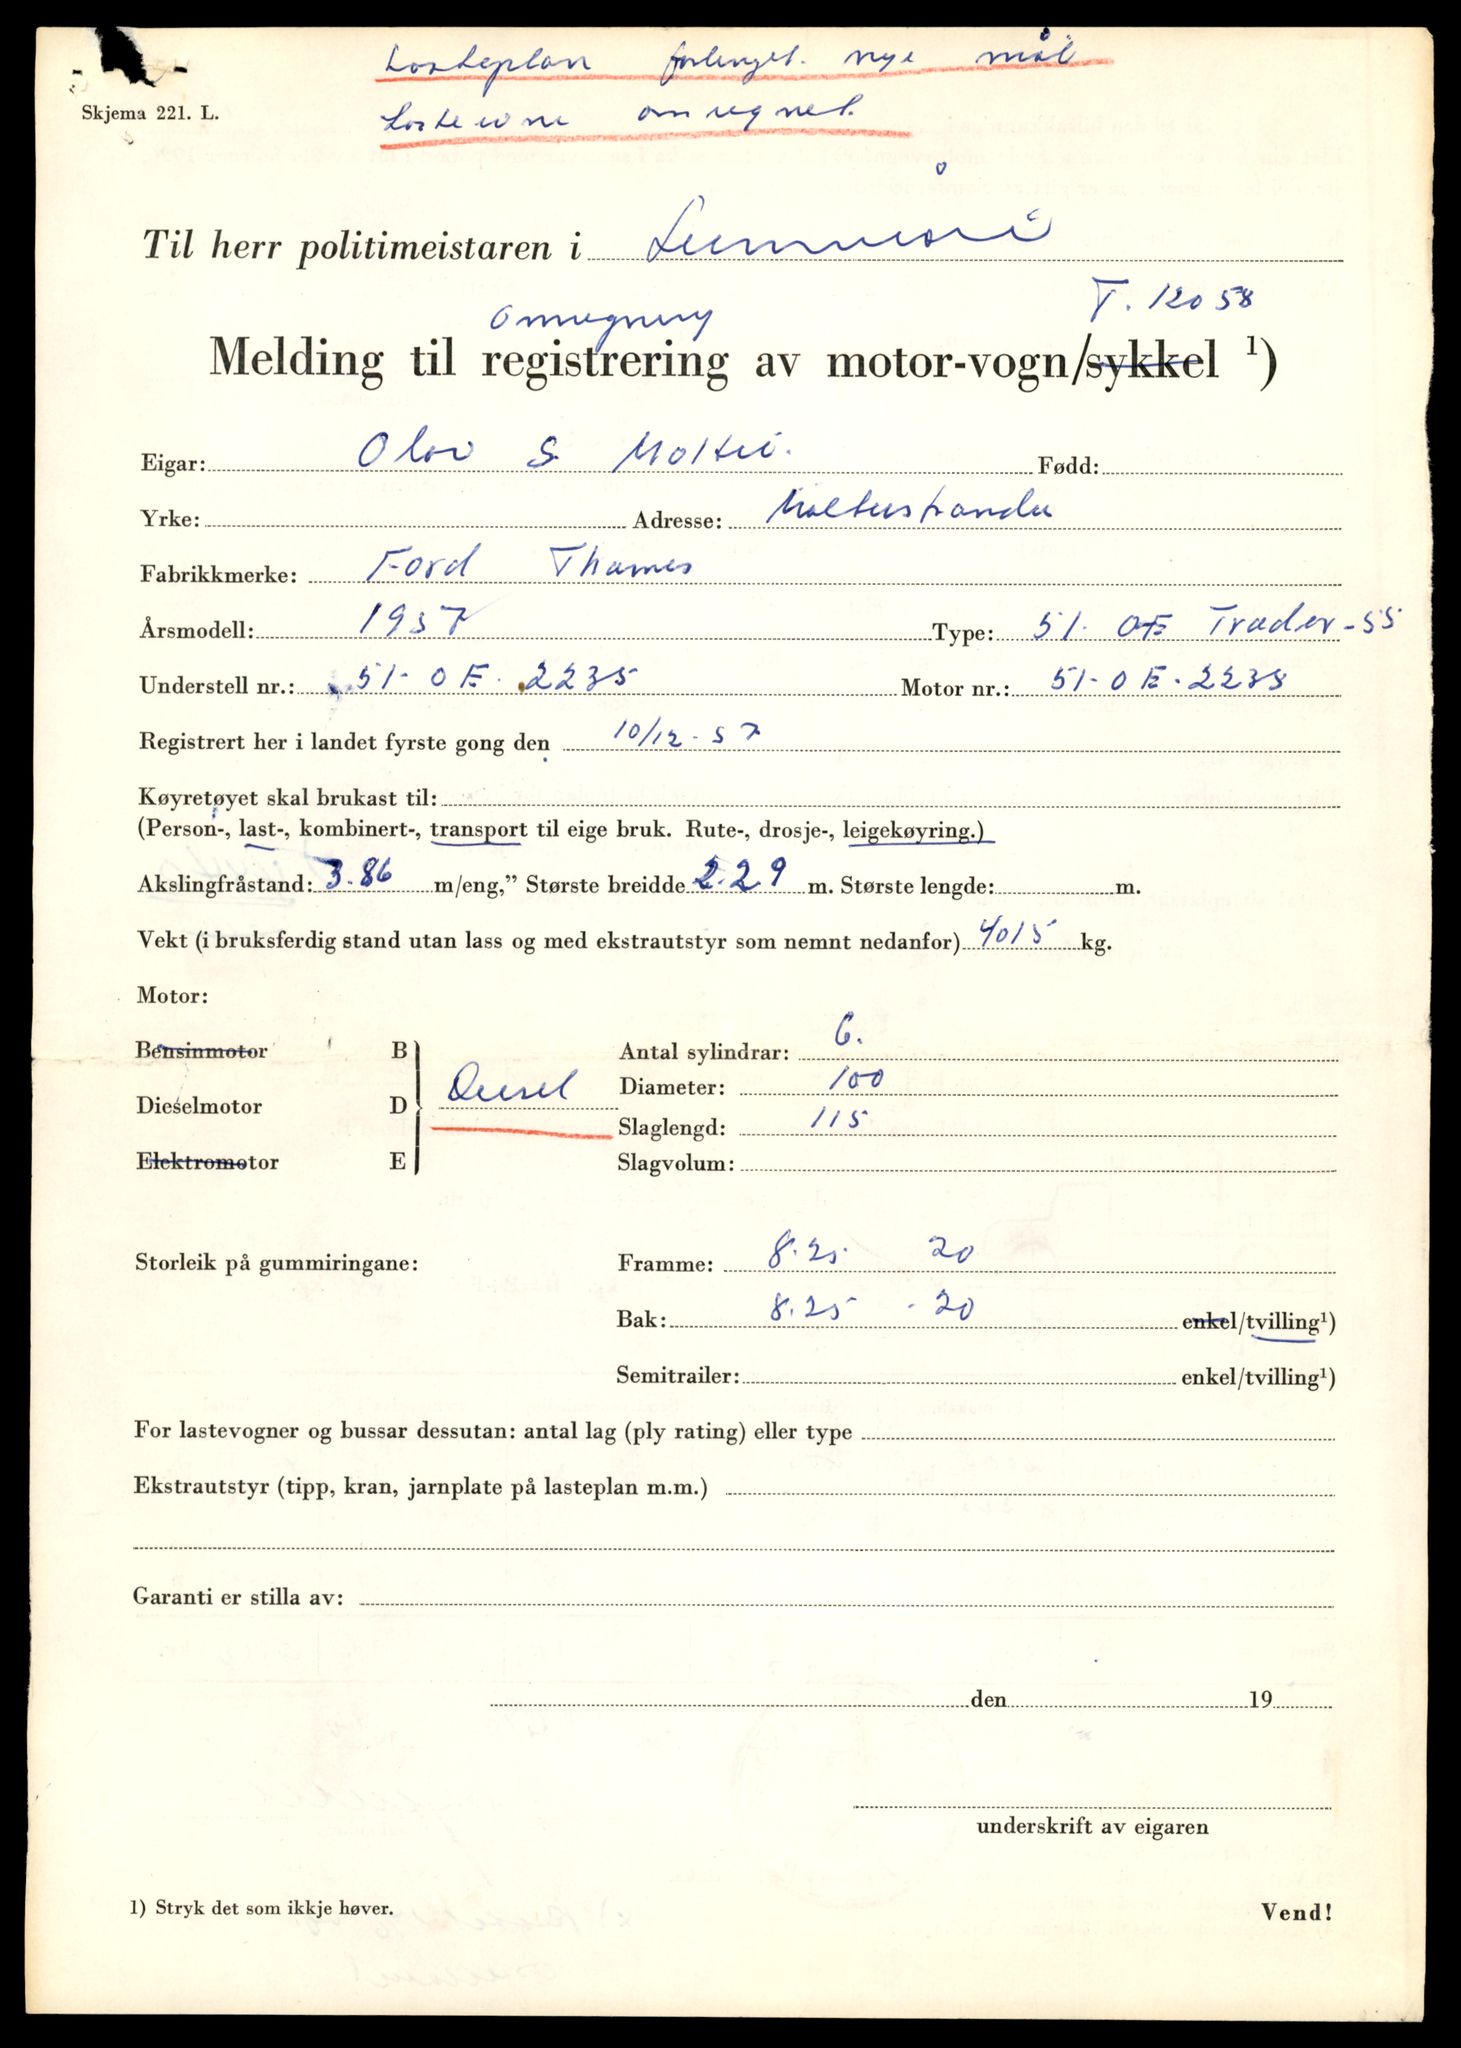 Lasteplan forlenget. nye mål
Skjema 221. L.
Lasteevne omregnet.
Til herr politimeistaren i Sunnmøre
T. 12058
Omregning
Melding til registrering av motor-vogn/sykkel ¹)
Eigar: Olav S Molteu. Fødd:
Yrke: Adresse: Moltustranda
Fabrikkmerke: Ford Thames
Årsmodell: 1957 Type: 51. OE Trader-55
Understell nr.: 51-OE. 2235 Motor nr.: 51-OE.2235
Registrert her i landet fyrste gong den 10/12-57
Køyretøyet skal brukast til:
(Person-, last-, kombinert-, transport til eige bruk. Rute-, drosje-, leigekøyring.)
Akslingfråstand: 3.86 m/eng,” Største breidde 2.29 m. Største lengde: m.
Vekt (i bruksferdig stand utan lass og med ekstrautstyr som nemnt nedanfor) 4015 kg.
Motor:
Bensinmotor B Antal sylindrar: 6.
Diesel Diameter: 100
Dieselmotor D
Slaglengd: 115
Elektromotor E Slagvolum:
Storleik på gummiringane: Framme: 8.25 20
Bak: 8.25 - 20 enkel/tvilling¹)
Semitrailer: enkel/tvilling¹)
For lastevogner og bussar dessutan: antal lag (ply rating) eller type
Ekstrautstyr (tipp, kran, jarnplate på lasteplan m.m.)
Garanti er stilla av:
den 19
underskrift av eigaren
1) Stryk det som ikkje høver. Vend!